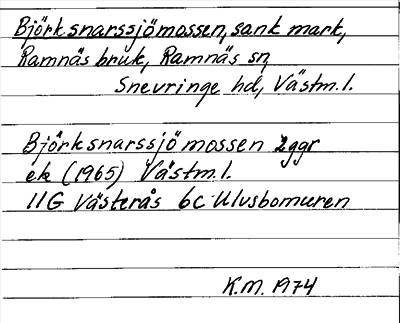 Björksnarssjömossen, sank mark,
Ramnäs bruk, Ramnäs sn,
Snevringe hd, Västm.l.
Björksnarssjömossen 2ggr
ek (1965) Västm.l.
11G Västerås 6c Ulvsbomuren
K.M. 1974